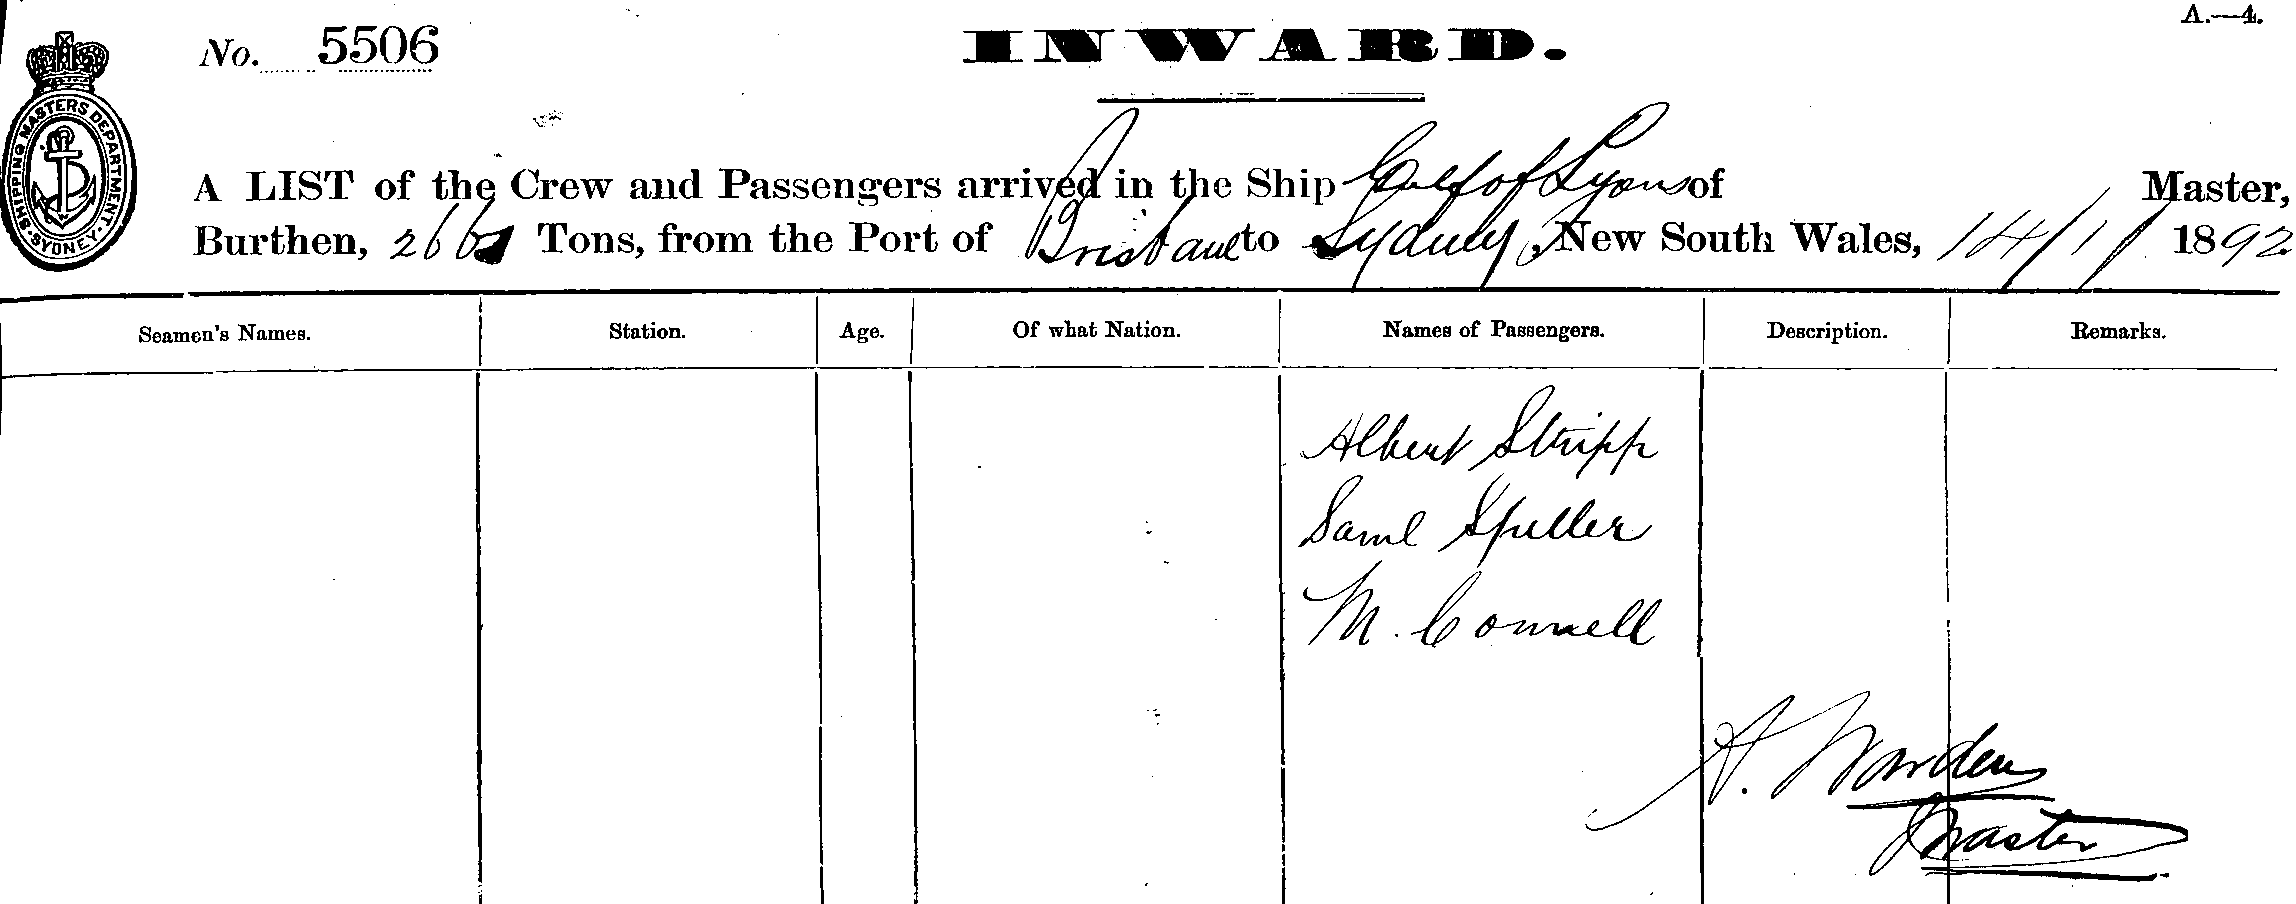 A.—4.
No. 5506
INWARD.
SHIPPING MASTERS DEPARTMENT. SYDNEY.
A LIST of the Crew and Passengers arrived in the Ship Gulf of Lyons of Master,
Burthen, Tons, from the Port of Brisbane to Sydney, New South Wales, 14/1/ 1892
Seamen's Names. Station. Age. Of what Nation. Names of Passengers. Description. Remarks.
Albert Stripp
Saml Spiller
M. Connell
A. Warden
Master